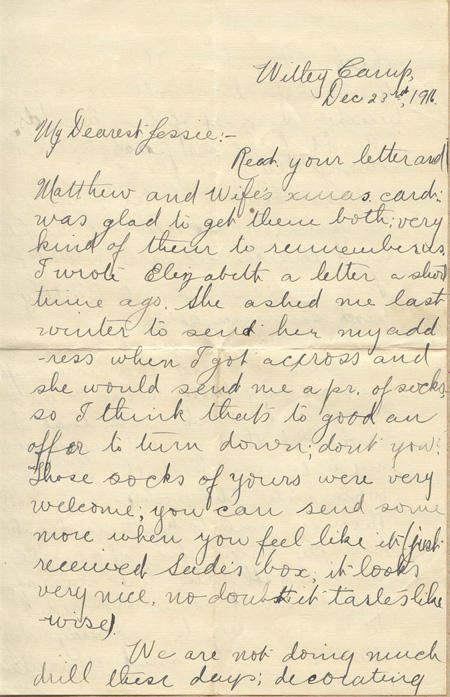 Witley Camp,
Dec 23rd, 1916.
My Dearest Jessie:-
Recd. your letter and
Matthew and Wife's xmas card;
was glad to get them both; very
kind of them to remember us.
I wrote Elizabeth a letter a short
time ago. She asked me last
winter to send her my add
-ress when I got across and
she would send me a pr. of socks,
so I think that's to good an
offer to turn down; dont you?
Those socks of yours were very
welcome; you can send some
more when you feel like it (just
received Sade's box; it looks
very nice, no doubt it taste's like
-wise).
We are not doing much
drill these days; decorating